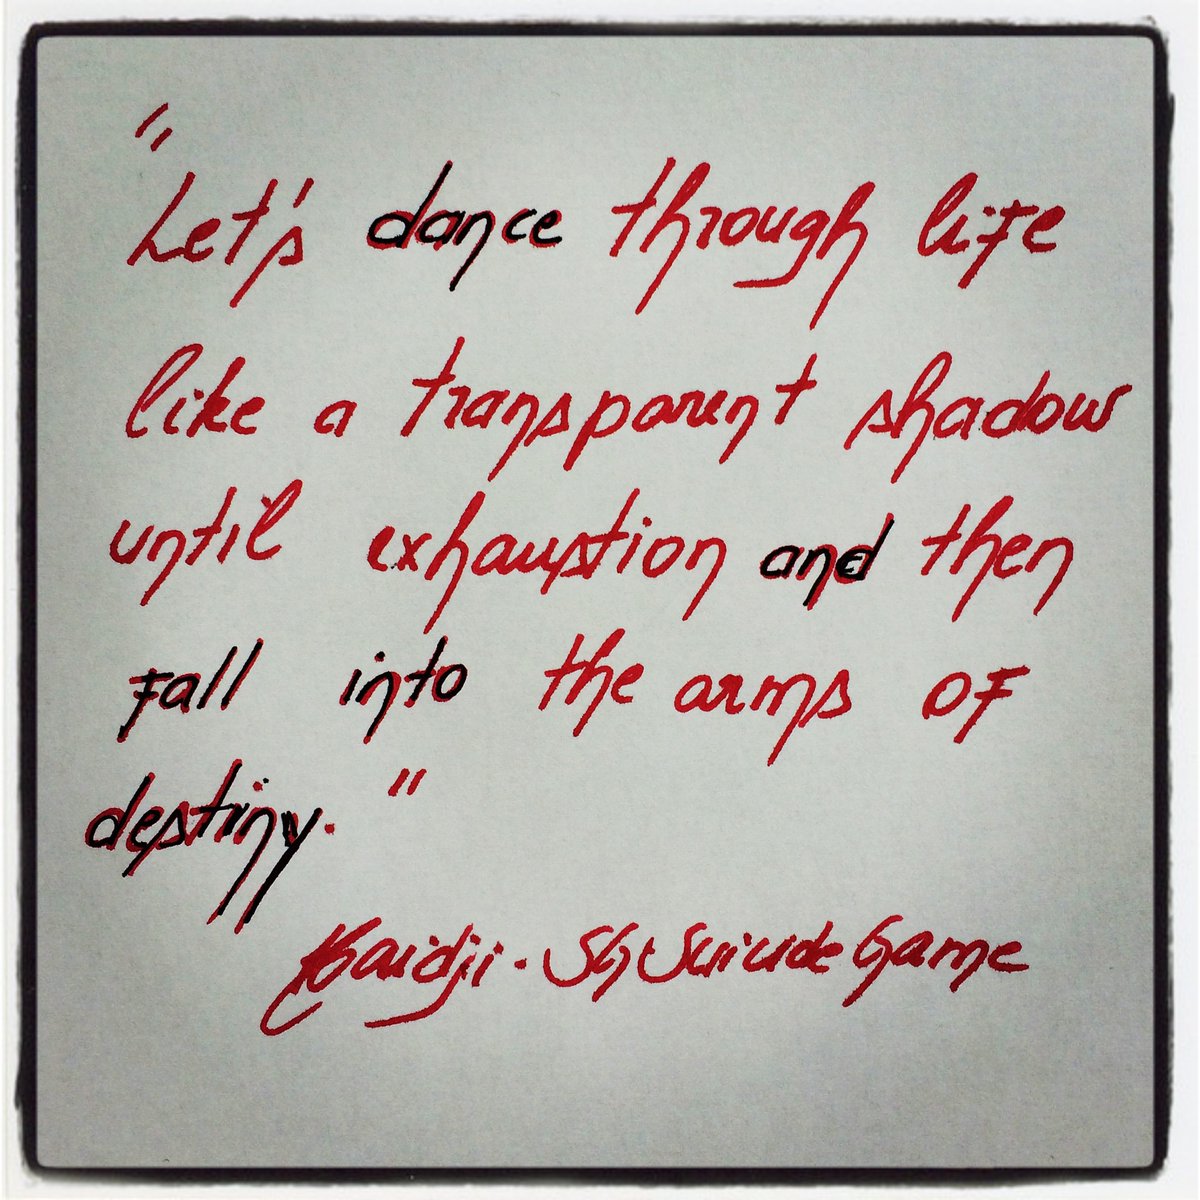 "Let's dance through life
like a transparent shadow
until exhaustion and then
fall into the arms of
destiny."
Kaidji - SG Suicide Game